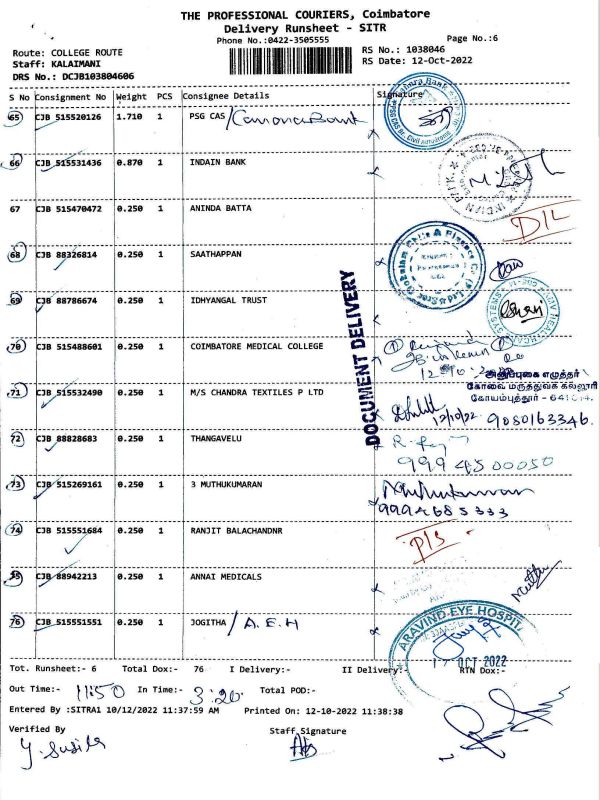 THE PROFESSIONAL COURIERS, Coimbatore
Delivery Runsheet - SITR
Phone No.:0422-3505555
Page No.:6
Route: COLLEGE ROUTE
RS No.: 1038046
Staff: KALAIMANI
RS Date: 12-Oct-2022
DRS No.: DCJB103804606
S No Consignment No Weight PCS Consignee Details Signature
65 CJB 515520126 1.710 1 PSG CAS / Canara Bank
66 CJB 515531436 0.870 1 INDAIN BANK
67 CJB 515470472 0.250 1 ANINDA BATTA
D/L
68 CJB 88326814 0.250 1 SAATHAPPAN
69 CJB 88786674 0.250 1 IDHYANGAL TRUST
DOCUMENT DELIVERY
70 CJB 515488601 0.250 1 COIMBATORE MEDICAL COLLEGE
அனுப்புகை எழுத்தர்
கோவை மருத்துவக் கல்லூரி
கோயம்புத்தூர் - 641014.
71 CJB 515532490 0.250 1 M/S CHANDRA TEXTILES P LTD
12/10/22 9080163346.
72 CJB 88828683 0.250 1 THANGAVELU
999 4500050
73 CJB 515269161 0.250 1 3 MUTHUKUMARAN
9994685333
74 CJB 515551684 0.250 1 RANJIT BALACHANDNR
75 CJB 88942213 0.250 1 ANNAI MEDICALS
76 CJB 515551551 0.250 1 JOGITHA / A.E.H
ARAVIND EYE HOSPIT
OCT 2022
Tot. Runsheet:- 6 Total Dox:- 76 I Delivery:- II Delivery:- RTN Dox:-
Out Time:- 11:50 In Time:- 3:20 Total POD:-
Entered By :SITRA1 10/12/2022 11:37:59 AM Printed On: 12-10-2022 11:38:38
Verified By
Staff Signature
Y. Susila